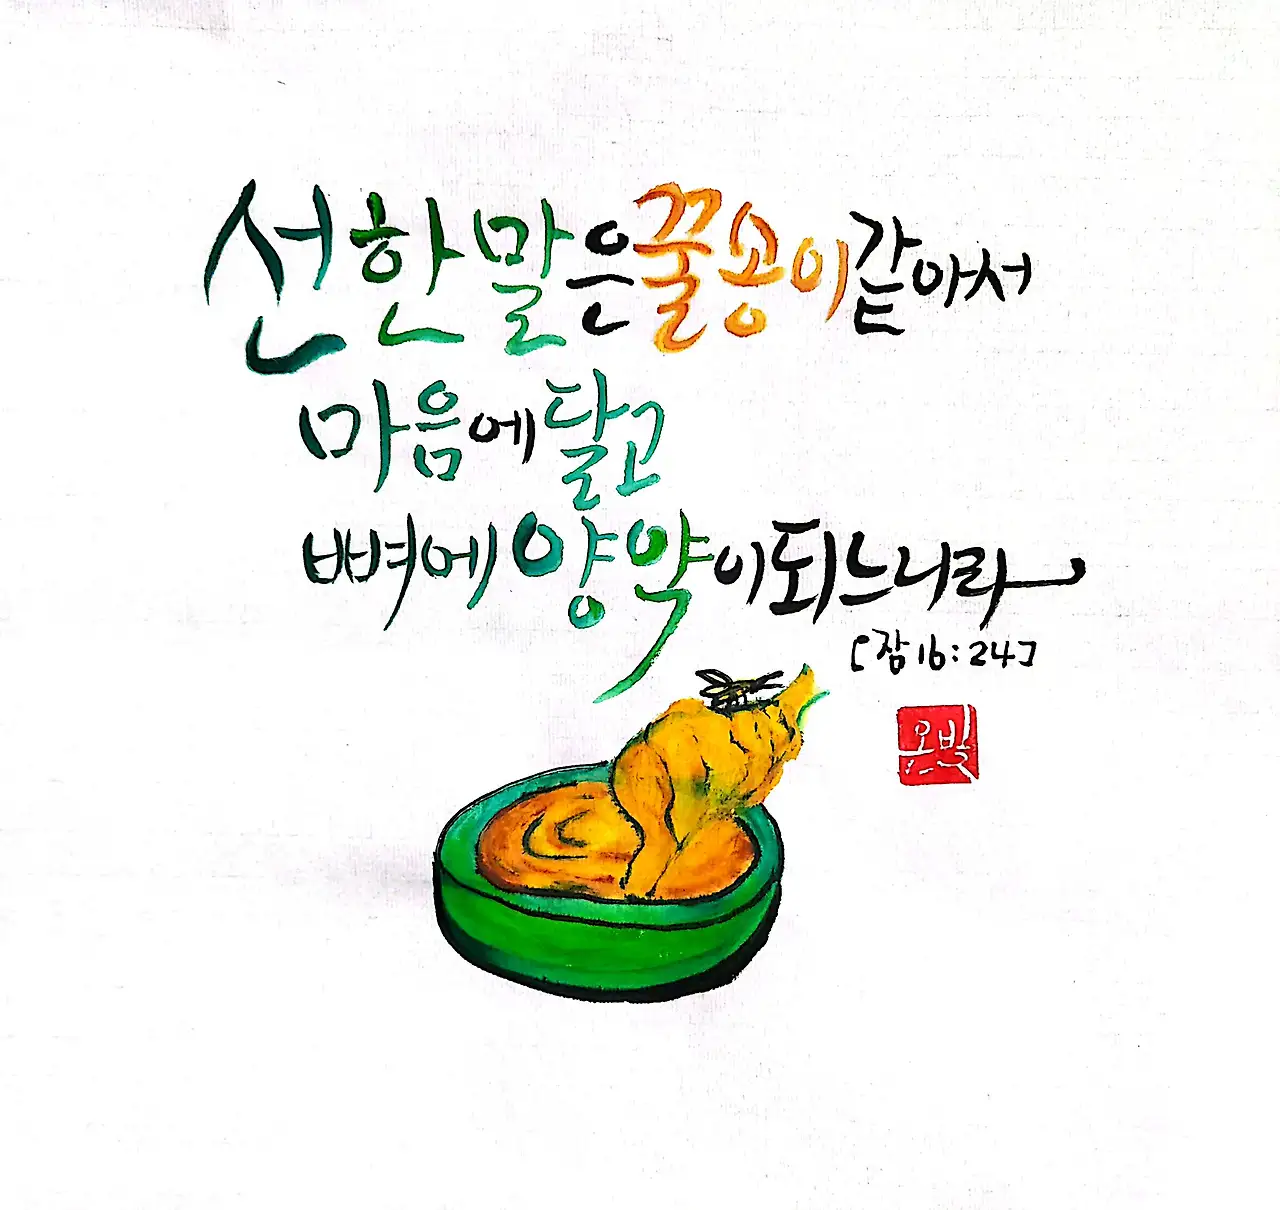 선한 말은 꿀송이 같아서
마음에 달고
뼈에 양약이 되느니라
[잠16:24]